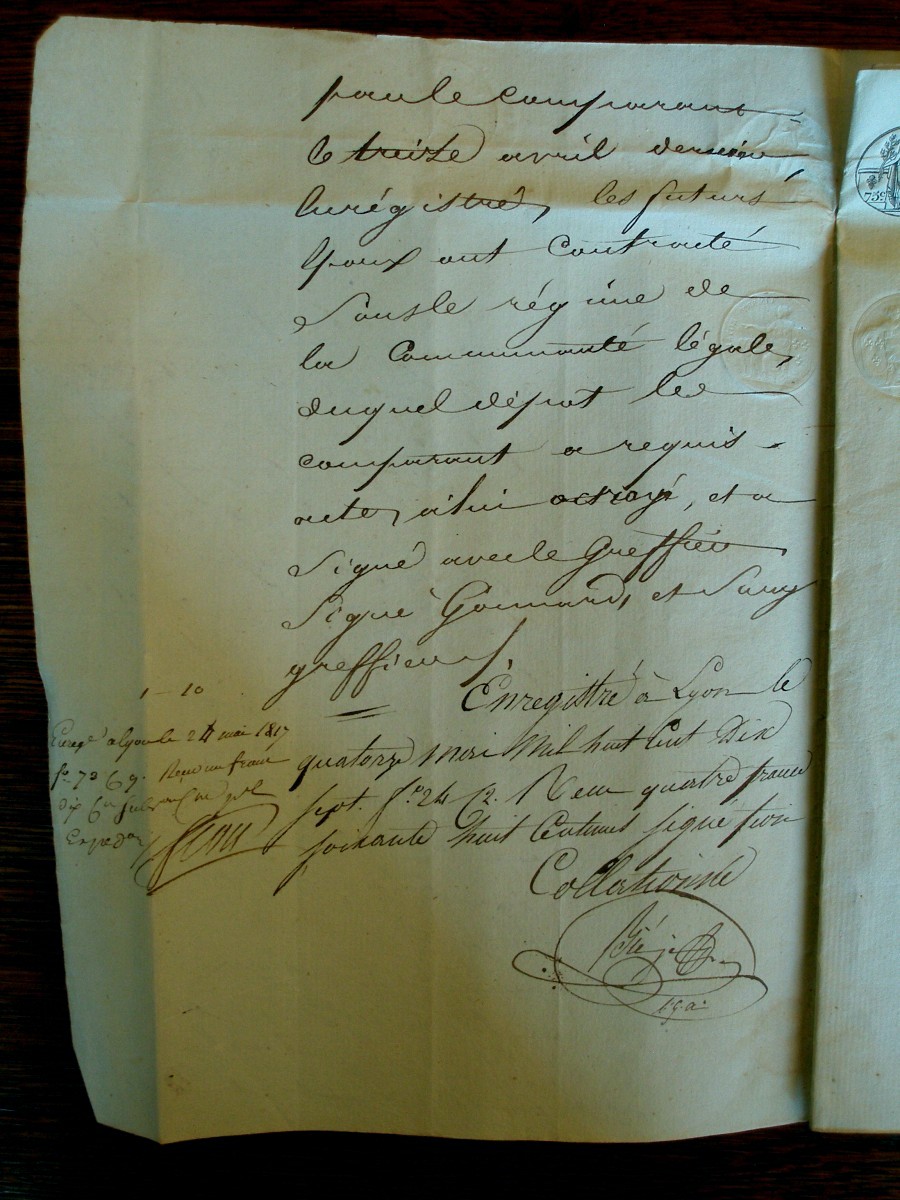 par le comparant
le treize avril dernier
Enrégistré, les futurs
Epoux ont contracté
sous le régime de
la Communauté légale,
duquel dépot le
comparant a requis
acte, à lui octroyé, et a
signé avec le Greffier
Signé et
greffier
Enregistré à Lyon le
quatorze mai Mil huit Cent Dix
sept. fo. 24 Reçu quatre francs
soixante huit Centimes signé
Collationné
1 - 10
Enregé à Lyon le 24 mai 1817
fo. 72 Reçu un franc
dix
Expedon
75c